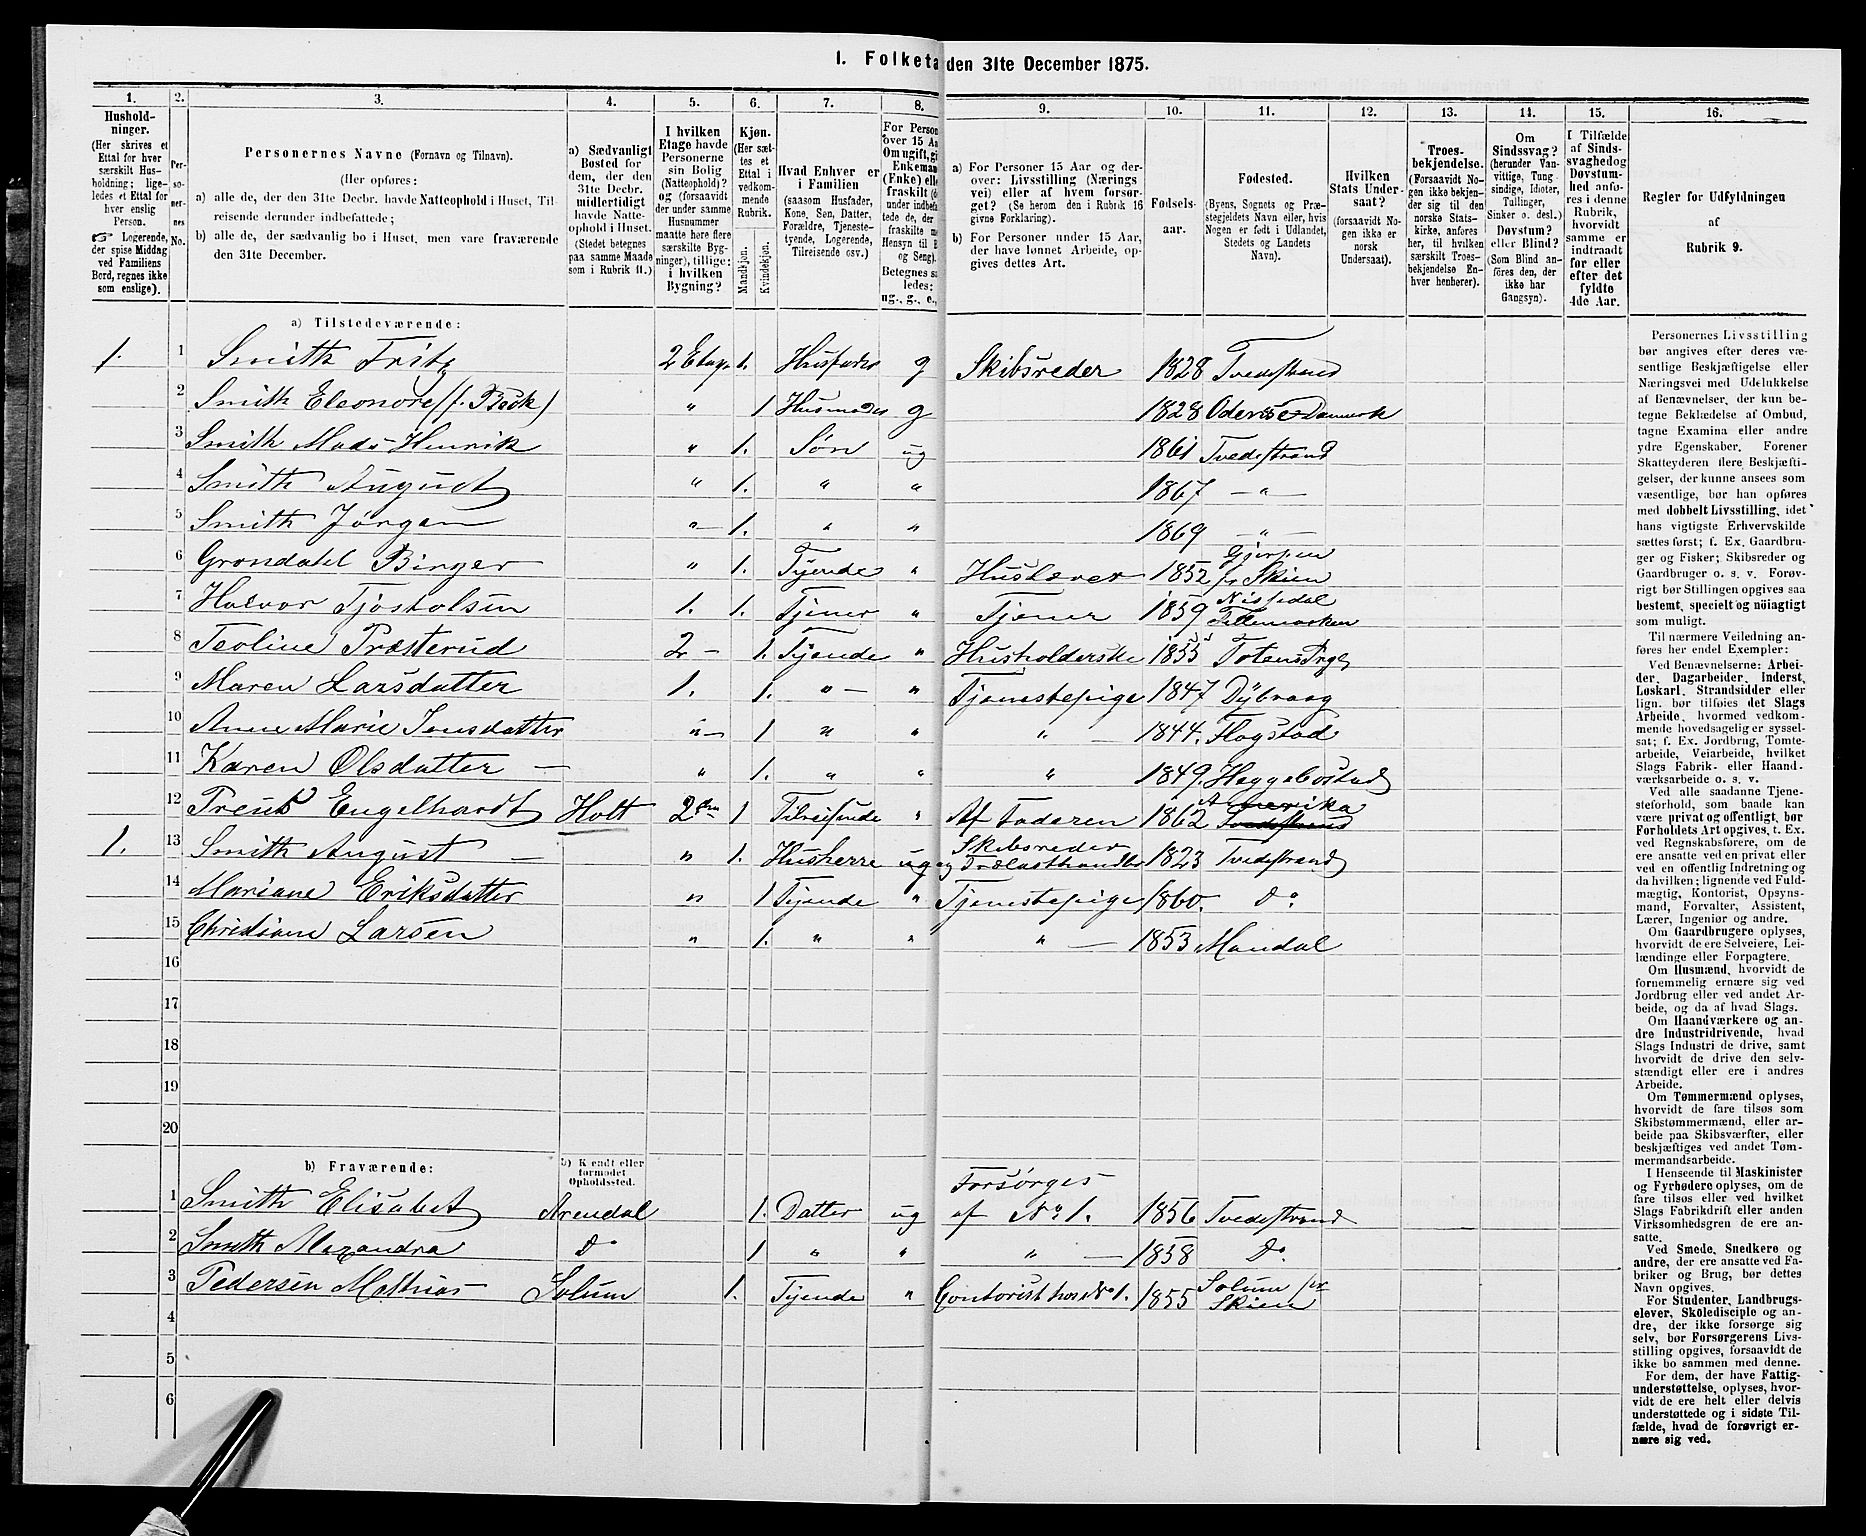 I. Folketa den 31te December 1875.
1. 2. 3. 4. 5. 6. 7. 8. 9. 10. 11. 12. 13. 14. 15. 16.
Hushold-
ninger.
(Her skrives et
Ettal for hver
særskilt Hus-
holdning; lige-
ledes et Ettal for
hver enslig
Person.
☞ Logerende,
der spise Middag
ved Familiens
Bord, regnes ikke
som enslige).
Per-
so-
ner-
nes
No.
Personernes Navne (Fornavn og Tilnavn).
(Her opføres:
a) alle de, der den 31te Decbr. havde Natteophold i Huset, Til-
reisende derunder indbefattede;
b) alle de, der sædvanlig bo i Huset, men vare fraværende
den 31te December.
a) Sædvanligt
Bosted for
dem, der den
31te Decbr.
midlertidigt
havde Natte-
ophold i Huset.
(Stedet betegnes
paa samme Maade
som i Rubrik 11.)
I hvilken
Etage havde
Personerne
sin Bolig
(Natteophold)?
og (forsaavidt
der under samme
Husnummer
maatte høre flere
særskilte Byg-
ninger), tillige:
i hvilken
Bygning?
Kjøn.
(Her sæt-
tes et
Ettal i
vedkom-
mende
Rubrik.
Mandkjøn.
Kvindekjøn.
Hvad Enhver er
i Familien
(saasom Husfader,
Kone, Søn, Datter,
Forældre, Tjeneste-
tyende, Logerende,
Tilreisende osv.)
For Person
over 15 Aa
Om ugift, gi
Enkema
(Enke) elle
fraskilt (
tede de,
fraskilte
Hensyn til B
og Seng).
Betegnes sa
ledes:
ug., g., e.,
a) For Personer 15 Aar og der-
over: Livsstilling (Nærings
vei) eller af hvem forsør-
get? (Se herom den i Rubrik 16
givne Forklaring).
b) For Personer under 15 Aar,
der have lønnet Arbeide, op-
gives dettes Art.
Fødsels-
aar.
Fødested.
(Byens, Sognets og Præ-
stegjeldets Navn eller, hvis
Nogen er født i Udlandet,
Stedets og Landets
Navn).
Hvilken
Stats Under-
saat?
(forsaavidt No-
gen ikke er
norsk
Undersaat).
Troes-
bekjendelse.
(Forsaavidt No-
gen ikke bekjen-
der sig til den
norske Stats-
kirke, anføres
her, til hvilken
særskilt Troes-
bekjendelse En-
hver henhører).
Om
Sindssvag?
(herunder Van-
vittige, Tung-
sindige, Idioter,
Tullinger,
Sinker o. desl.)
Døvstum?
eller Blind?
(Som Blind an-
føres den, der
ikke har
Gangsyn).
I Tilfælde
af Sinds-
svaghed og
Døvstum-
hed anfø-
res i denne
Rubrik,
hvorvidt
samme er
indtraadt
før eller
efter det
fyldte
4de Aar.
Regler for Udfyldningen
af
Rubrik 9.
a) Tilstedeværende:
1. 1 Smith Fritz 2 Etage 1. Husfader g Skibsreder 1828 Tvedestrand
2 Smith Eleonore (f. Beck) " 1 Husmoder g 1828 Odense Danmark
3 Smith Mads Henrik " 1. Søn ug 1861 Tvedestrand
4 Smith August " 1. " " 1867 — " —
5 Smith Jørgen " — 1. " " 1869 — " —
6 Grøndahl Birger " 1. Tyende " Huslærer 1852 Gjerpen
pr Skien
7 Halvor Tjostolsen 1. 1. Tjener " Tjener 1859 Nissedal
Tellemarken
8 Teoline Præsterud 2 — 1. Tyende " Husholderske 1855 Totens Prgj
9 Maren Larsdatter 1. 1. " — " Tjenestepige 1847 Dybvaag
10 Anne Marie Jensdatter " — 1 " " " — 1844.
11 Karen Olsdatter — " 1. " " " 1849. Heggebostad
12 Engelhardt Holt 2den 1 Tilreisende " Af Faderen 1862 Amerika
Tvedestrand
1. 13 Smith August — " 1. Husherre ug Skibsreder
og Trælasthandler 1823 Tvedestrand
14 Mariane Eriksdatter " 1 Tyende " Tjenestepige 1860. Do
15 Christiane Larsen " 1. " " " — 1853 Mandal
16
17
18
19
20
b) Fraværende:
b) Kjendt eller
formodet
Opholdssted.
1 Smith Elisabet Arendal 1. Datter ug Forsørges
af No 1. 1856 Tvedestrand
2 Smith Alexandra Do 1 " " " — 1858 Do.
3 Pedersen Mathias Solum 1. Tyende " Contorist hos No 1. 1855 Solum pr
Skien
4
5
6
Personernes Livsstilling
bør angives efter deres væ-
sentlige Beskjæftigelse eller
Næringsvei med Udelukkelse
af Benævnelser, der kun be-
tegne Beklædelse af Ombud,
tagne Examina eller andre
ydre Egenskaber. Forener
Skatteyderen flere Beskjæfti-
gelser, der kunne ansees som
væsentlige, bør han opføres
med dobbelt Livsstilling, idet
hans vigtigste Erhvervskilde
sættes først; f. Ex. Gaardbru-
ger og Fisker; Skibsreder og
Gaardbruger o. s. v. Forøv-
rigt bør Stillingen opgives saa
bestemt, specielt og nøiagtigt
som muligt.
Til nærmere Veiledning an-
føres her endel Exempler:
Ved Benævnelserne: Arbei-
der, Dagarbeider, Inderst,
Løskarl, Strandsidder eller
lign. bør tilføies det Slags
Arbeide, hvormed vedkom-
mende hovedsagelig er syssel-
sat; f. Ex. Jordbrug, Tomte-
arbeide, Veiarbeide, hvilket
Slags Fabrik- eller Haand-
værksarbeide o. s. v.
Ved alle saadanne Tjene-
steforhold, som baade kan
være privat og offentligt, bør
Forholdets Art opgives, t. Ex.
ved Regnskabsførere, om de
ere ansatte ved en privat eller
ved en offentlig Indretning og
da hvilken; lignende ved Fuld-
mægtig, Kontorist, Opsyns-
mand, Forvalter, Assistent,
Lærer, Ingeniør og andre.
Om Gaardbrugere oplyses,
hvorvidt de ere Selveiere, Lei-
lændinge eller Forpagtere.
Om Husmænd, hvorvidt de
fornemmelig ernære sig ved
Jordbrug eller ved andet Ar-
beide, og da af hvad Slags.
Om Haandværkere og an-
dre Industridrivende, hvad
Slags Industri de drive, samt
hvorvidt de drive den selv-
stændigt eller ere i andres
Arbeide.
Om Tømmermænd oplyses,
hvorvidt de fare tilsøs som
Skibstømmermænd, eller ar-
beide paa Skibsværfter, eller
beskjæftiges ved andet Tøm-
mermandsarbeide.
I Henseende til Maskinister
og Fyrbødere oplyses, om de
fare tilsøs eller ved hvilket
Slags Fabrikdrift eller anden
Virksomhedsgren de ere an-
satte.
Ved Smede, Snedkere og
andre, der ere ansatte ved Fa-
briker og Brug, bør dettes
Navn opgives.
For Studenter, Landbrugs-
elever, Skoledisciple og an-
dre, der ikke forsørge sig
selv, bør Forsørgerens Livs-
stilling opgives, forsaavidt de
ikke bo sammen med denne.
For dem, der have Fattig-
understøttelse, oplyses, hvor-
vidt de ere helt eller delvis
understøttede og i sidste Til-
fælde, hvad de forøvrigt er-
nære sig ved.